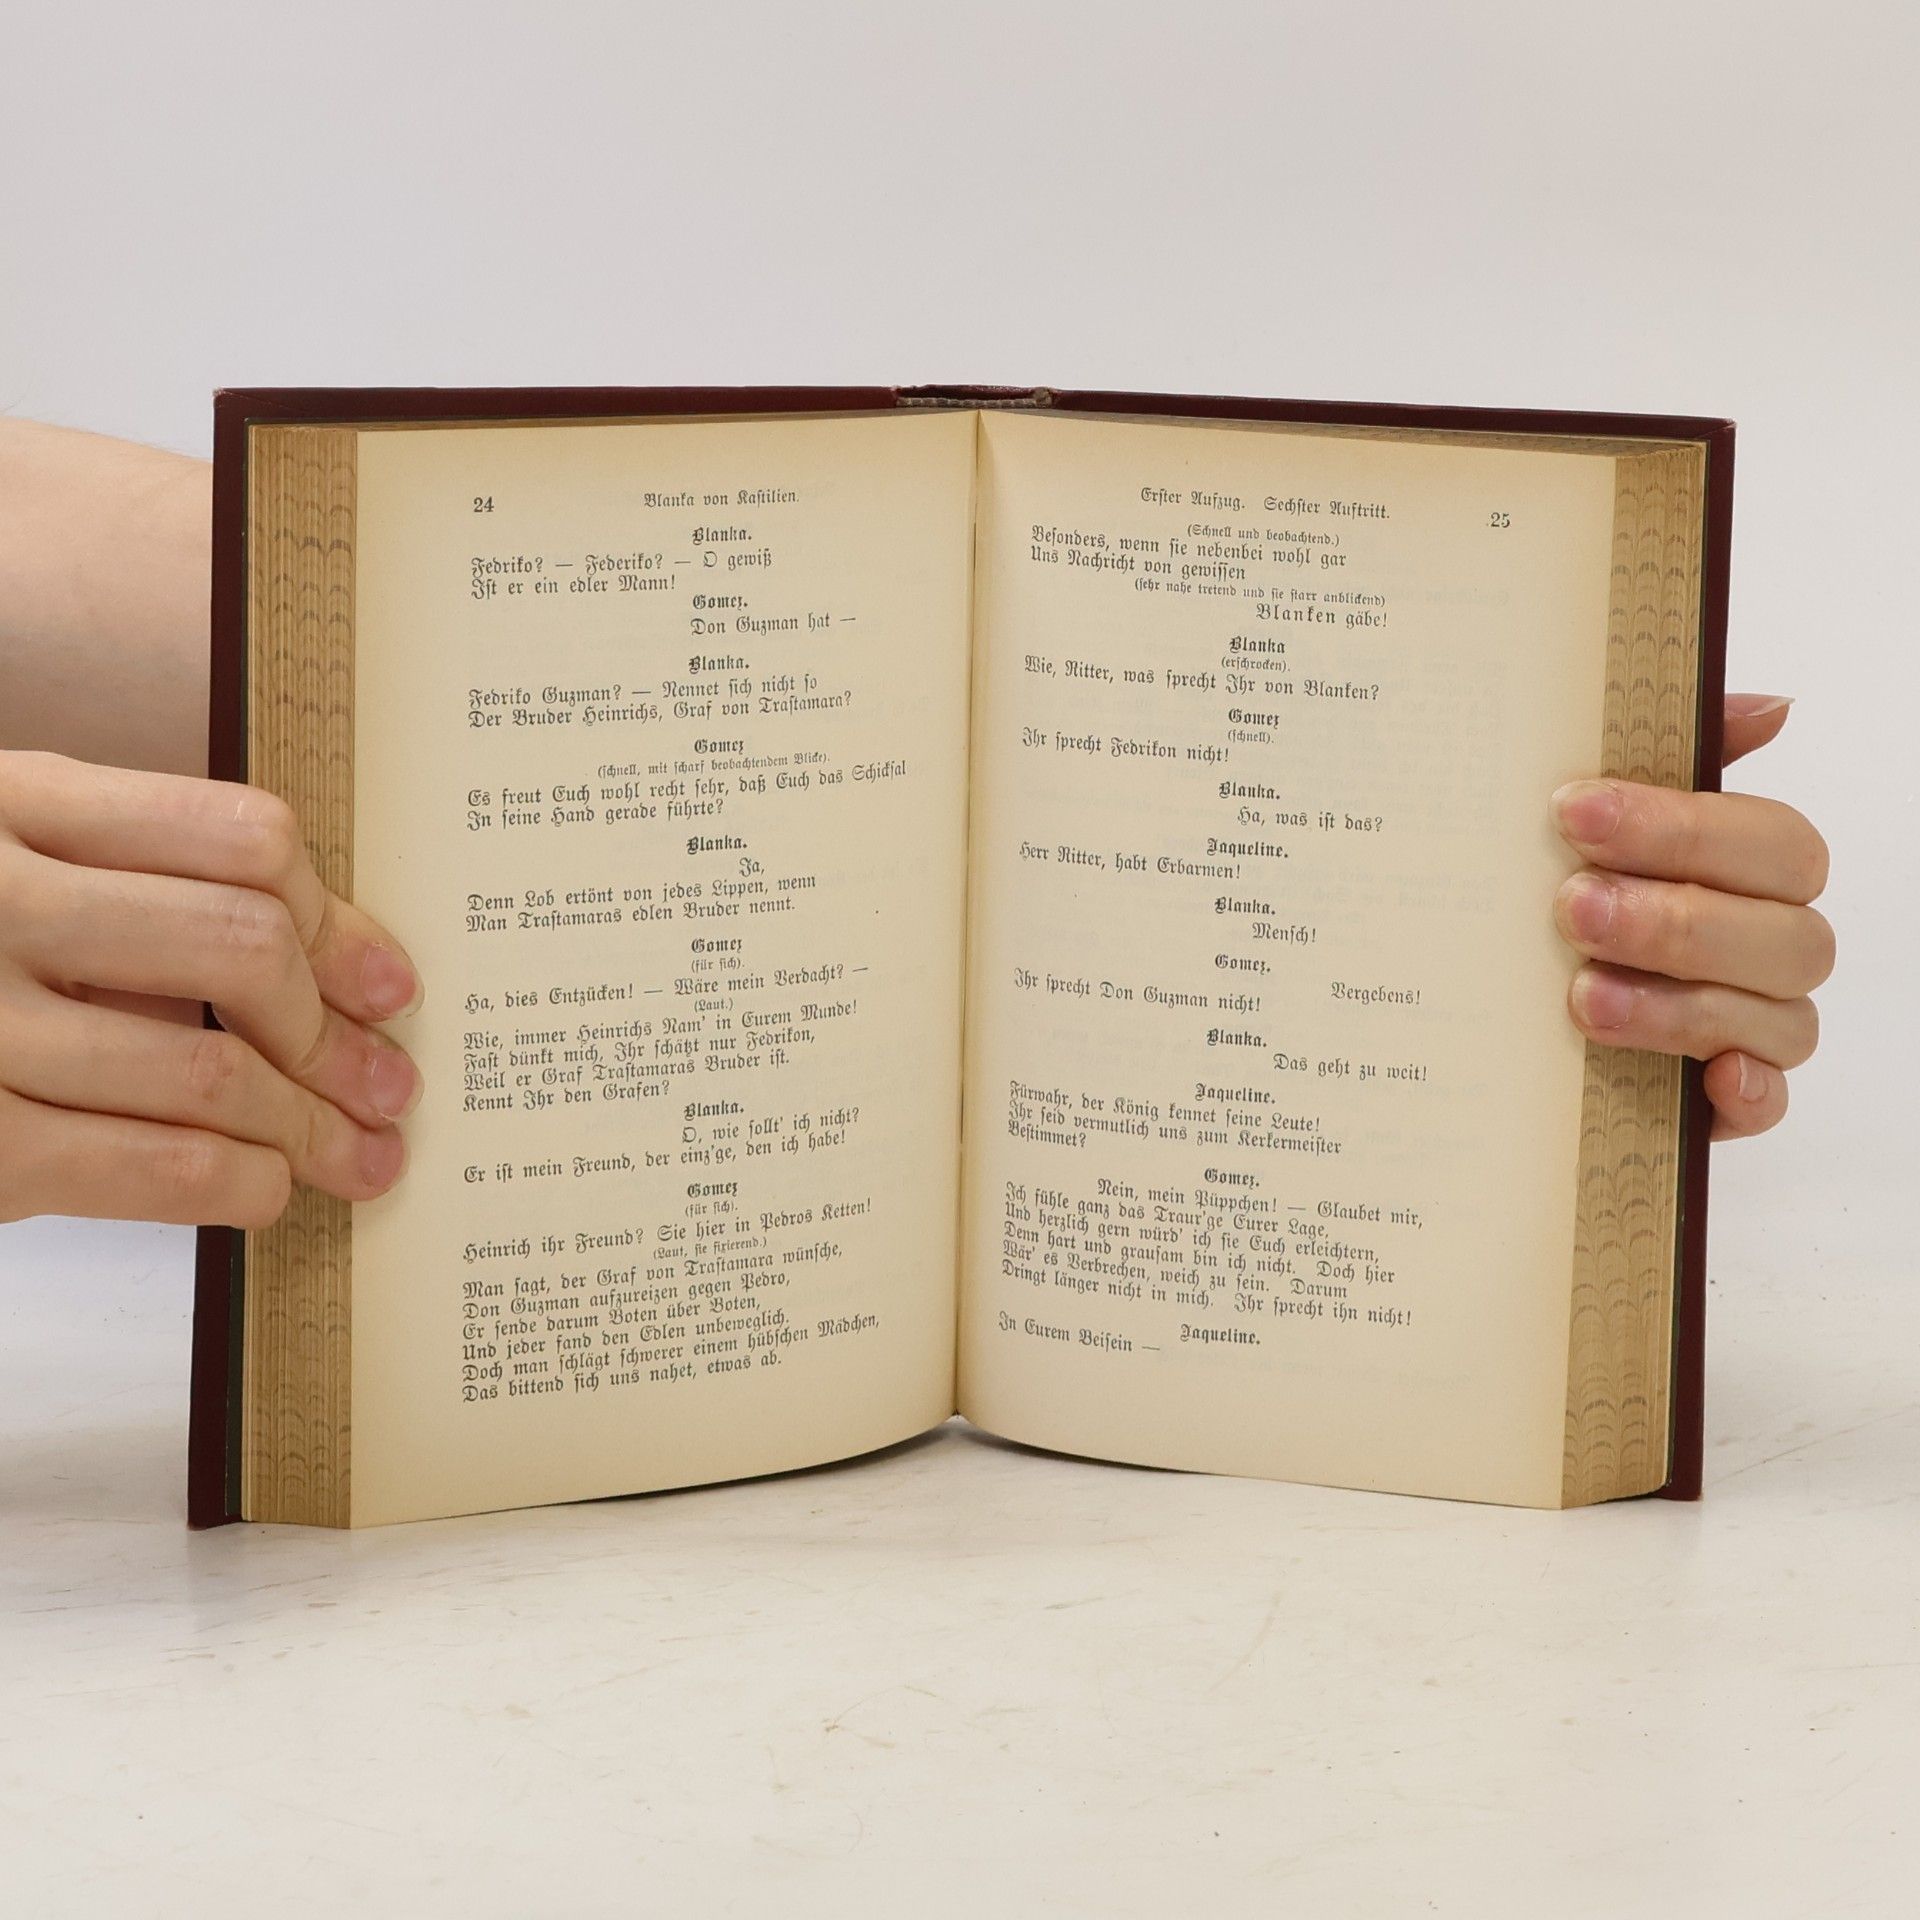 24
Blanka von Kaſtilien.
Blanka.
Fedriko? — Federiko? — O gewiß
Iſt er ein edler Mann!
Gomez.
Don Guzman hat —
Blanka.
Fedriko Guzman? — Nennet ſich nicht ſo
Der Bruder Heinrichs, Graf von Traſtamara?
Gomez
(ſchnell, mit ſcharf beobachtendem Blicke).
Es freut Euch wohl recht ſehr, daß Euch das Schickſal
In ſeine Hand gerade führte?
Blanka.
Ja,
Denn Lob ertönt von jedes Lippen, wenn
Man Traſtamaras edlen Bruder nennt.
Gomez
(für ſich).
Ha, dies Entzücken! — Wäre mein Verdacht? —
(Laut.)
Wie, immer Heinrichs Nam' in Eurem Munde!
Faſt dünkt mich, Ihr ſchätzt nur Fedrikon,
Weil er Graf Traſtamaras Bruder iſt.
Kennt Ihr den Grafen?
Blanka.
O, wie ſollt' ich nicht?
Er iſt mein Freund, der einz'ge, den ich habe!
Gomez
(für ſich).
Heinrich ihr Freund? Sie hier in Pedros Ketten!
(Laut, ſie fixierend.)
Man ſagt, der Graf von Traſtamara wünſche,
Don Guzman aufzureizen gegen Pedro,
Er ſende darum Boten über Boten,
Und jeder fand den Edlen unbeweglich.
Doch man ſchlägt ſchwerer einem hübſchen Mädchen,
Das bittend ſich uns nahet, etwas ab.
Erſter Aufzug. Sechſter Auftritt.
25
(Schnell und beobachtend.)
Beſonders, wenn ſie nebenbei wohl gar
Uns Nachricht von gewiſſen
(ſehr nahe tretend und ſie ſtarr anblickend)
Blanken gäbe!
Blanka
(erſchrocken).
Wie, Ritter, was ſprecht Ihr von Blanken?
Gomez
(ſchnell).
Ihr ſprecht Fedrikon nicht!
Blanka.
Ha, was iſt das?
Jaqueline.
Herr Ritter, habt Erbarmen!
Blanka.
Menſch!
Gomez.
Vergebens!
Ihr ſprecht Don Guzman nicht!
Blanka.
Das geht zu weit!
Jaqueline.
Fürwahr, der König kennet ſeine Leute!
Ihr ſeid vermutlich uns zum Kerkermeiſter
Beſtimmet?
Gomez.
Nein, mein Püppchen! — Glaubet mir,
Ich fühle ganz das Traur'ge Eurer Lage,
Und herzlich gern würd' ich ſie Euch erleichtern,
Denn hart und grauſam bin ich nicht. Doch hier
Wär' es Verbrechen, weich zu ſein. Darum
Dringt länger nicht in mich. Ihr ſprecht ihn nicht!
Jaqueline.
In Eurem Beiſein —